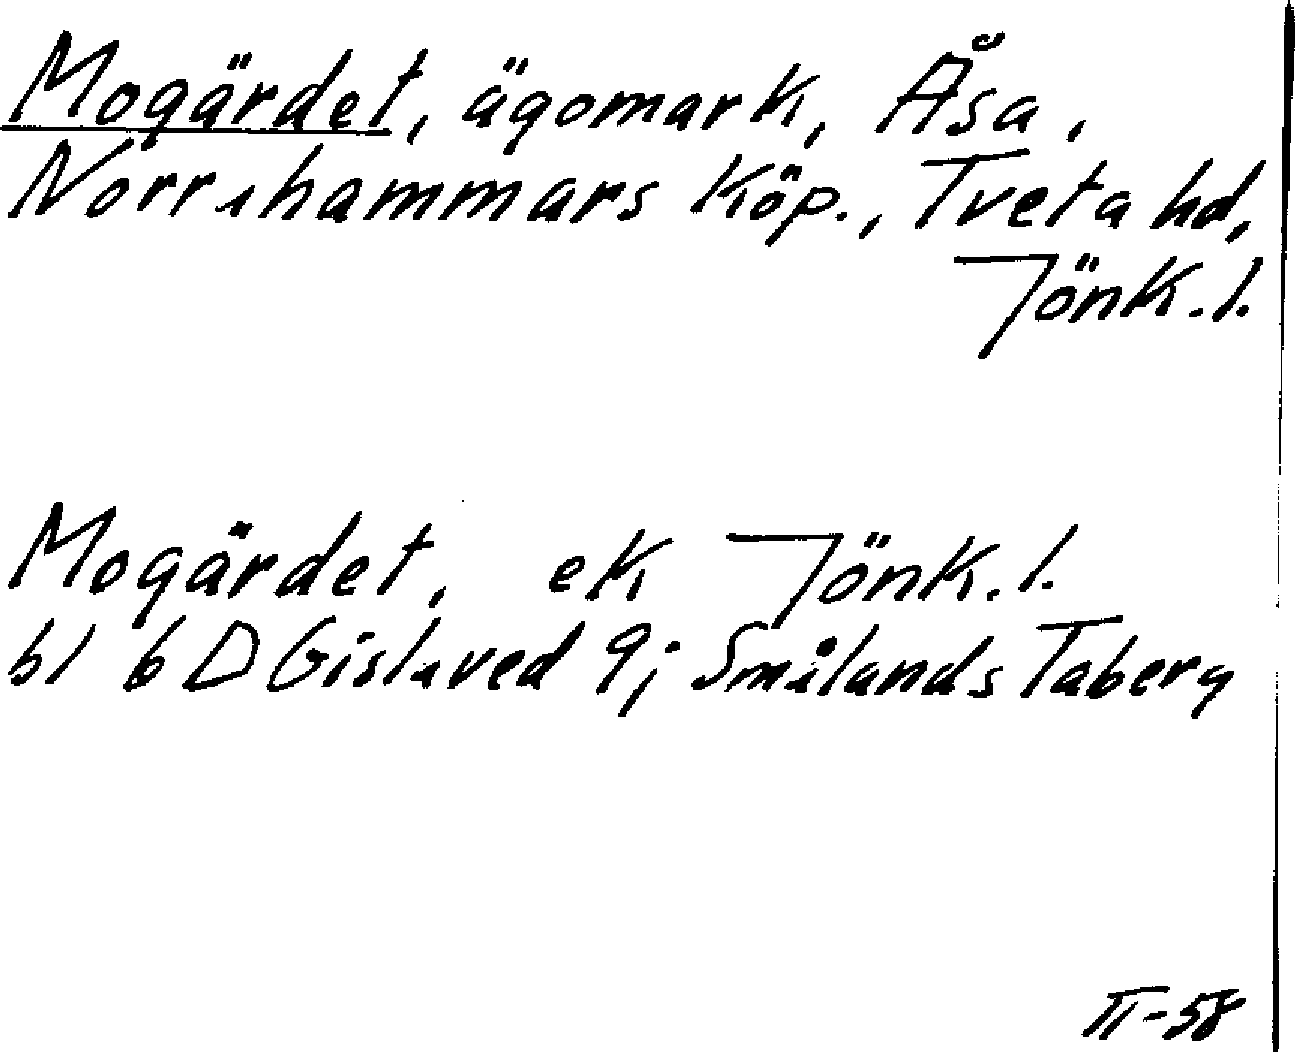 Mogärdet, ägomark, Åsa,
Norrahammars köp., Tveta hd,
Jönk.l.
Mogärdet, ek Jönk.l.
bl 6 D Gislaved 9j Smålands Taberg
II-58